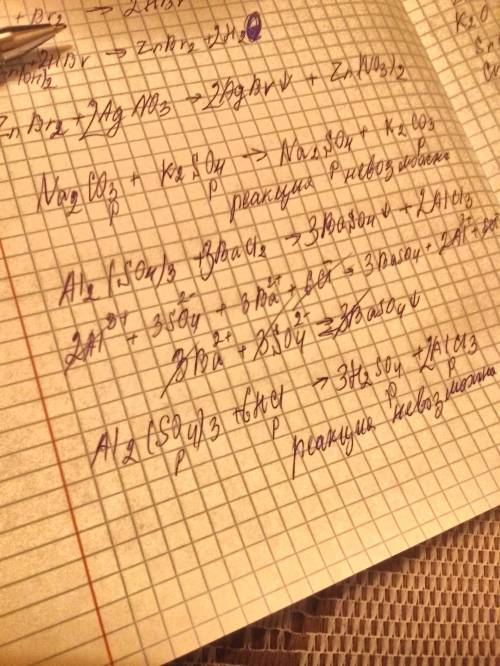 + Br2 → 2HBr
Zn(OH)2 + 2HBr → ZnBr2 + 2H2O
ZnBr2 + 2AgNO3 → 2AgBr↓ + Zn(NO3)2
Na2CO3 + K2SO4 → Na2SO4 + K2CO3
р р р р
реакция невозможна
Al2(SO4)3 + 3BaCl2 → 3BaSO4↓ + 2AlCl3
2Al3+ + 3SO4 2- + 3Ba2+ + 6Cl- = 3BaSO4 + 2Al3+ +
3Ba2+ + 3SO4 2- = 3BaSO4↓
Al2(SO4)3 + 6HCl → 3H2SO4 + 2AlCl3
р р р р
реакция невозможна
K2O